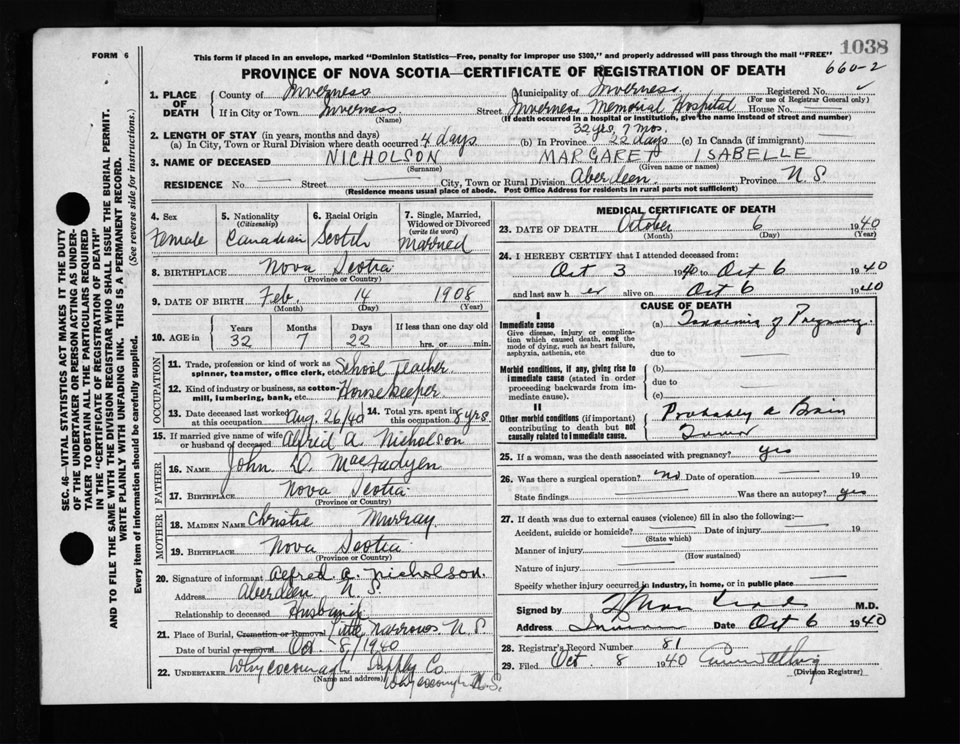 1038
FORM 6
This form if placed in an envelope, marked "Dominion Statistics—Free, penalty for improper use $300," and properly addressed will pass through the mail "FREE"
660-2
PROVINCE OF NOVA SCOTIA—CERTIFICATE OF REGISTRATION OF DEATH
1. PLACE OF DEATH
County of Inverness Municipality of Inverness Registered No.
(For use of Registrar General only)
If in City or Town Inverness Street Inverness Memorial Hospital House No.
(Name) (If death occurred in a hospital or institution, give the name instead of street and number)
2. LENGTH OF STAY (in years, months and days) 32 yrs. 7 mos.
(a) In City, Town or Rural Division where death occurred 4 days (b) In Province 22 days (c) In Canada (if immigrant)
3. NAME OF DECEASED NICHOLSON MARGARET ISABELLE
(Surname) (Given name or names)
RESIDENCE No. Street City, Town or Rural Division Aberdeen Province N.S.
(Residence means usual place of abode. Post Office Address for residents in rural parts not sufficient)
4. Sex Female
5. Nationality (Citizenship) Canadian
6. Racial Origin Scotch
7. Single, Married, Widowed or Divorced (write the word) Married
8. BIRTHPLACE Nova Scotia
(Province or Country)
9. DATE OF BIRTH Feb. 14 1908
(Month) (Day) (Year)
10. AGE in Years Months Days If less than one day old
32 7 22 hrs. or min.
OCCUPATION
11. Trade, profession or kind of work as spinner, teamster, office clerk, etc. School Teacher
12. Kind of industry or business, as cotton-mill, lumbering, bank, etc. Housekeeper
13. Date deceased last worked at this occupation Aug. 26/40 14. Total yrs. spent in this occupation 8 yrs.
15. If married give name of wife or husband of deceased Alfred A. Nicholson
FATHER
16. NAME John D. MacFadyen
17. BIRTHPLACE Nova Scotia
(Province or Country)
MOTHER
18. MAIDEN NAME Christie Murray
19. BIRTHPLACE Nova Scotia
(Province or Country)
20. Signature of informant Alfred A. Nicholson.
Address Aberdeen N.S.
Relationship to deceased Husband
21. Place of Burial, Cremation or Removal Little Narrows N.S.
Date of burial or removal Oct. 8/1940
22. UNDERTAKER Whycocomagh Supply Co.
(Name and address) Whycocomagh N.S.
MEDICAL CERTIFICATE OF DEATH
23. DATE OF DEATH October 6 1940
(Month) (Day) (Year)
24. I HEREBY CERTIFY that I attended deceased from:
Oct 3 1940 to Oct 6 1940
and last saw her alive on Oct 6 1940
CAUSE OF DEATH
I
Immediate cause (a) Toxaemia of Pregnancy.
Give disease, injury or complication which caused death, not the mode of dying, such as heart failure, asphyxia, asthenia, etc
due to
Morbid conditions, if any, giving rise to immediate cause (stated in order proceeding backwards from immediate cause).
(b)
due to
(c)
II
Other morbid conditions (if important) contributing to death but not causally related to immediate cause.
Probably a Brain
Tumor
25. If a woman, was the death associated with pregnancy? yes
26. Was there a surgical operation? no Date of operation 19
State findings Was there an autopsy? yes
27. If death was due to external causes (violence) fill in also the following:—
Accident, suicide or homicide? Date of injury 19
(State which)
Manner of injury
(How sustained)
Nature of injury
Specify whether injury occurred in industry, in home, or in public place
Signed by M.D.
Address Date Oct 6 1940
28. Registrar's Record Number 81
29. Filed Oct. 8 1940
(Division Registrar)
SEC. 46—VITAL STATISTICS ACT MAKES IT THE DUTY
OF THE UNDERTAKER OR PERSON ACTING AS UNDER-
TAKER TO OBTAIN ALL THE PARTICULARS REQUIRED
IN THE "CERTIFICATE OF REGISTRATION OF DEATH"
AND TO FILE THE SAME WITH THE DIVISION REGISTRAR WHO SHALL ISSUE THE BURIAL PERMIT.
WRITE PLAINLY WITH UNFADING INK. THIS IS A PERMANENT RECORD.
Every item of information should be carefully supplied. (See reverse side for instructions.)